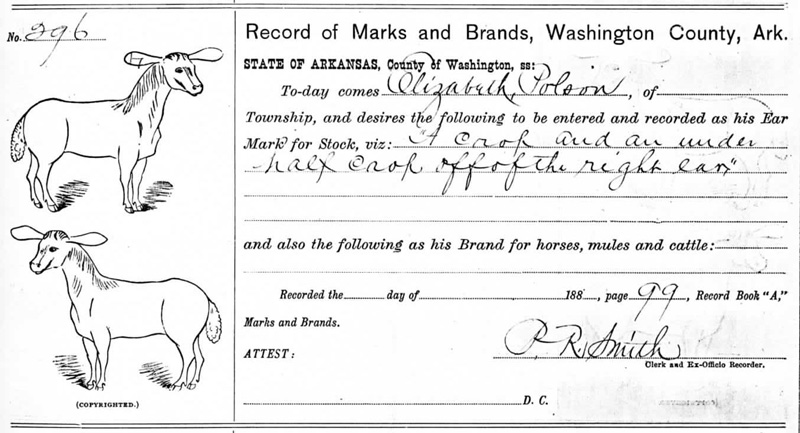 No. 296
Record of Marks and Brands, Washington County, Ark.
STATE OF ARKANSAS, County of Washington, ss:
To-day comes Elizabeth Polson, of
Township, and desires the following to be entered and recorded as his Ear
Mark for Stock, viz: "A Crop and an under
half Crop off of the right ear"
and also the following as his Brand for horses, mules and cattle:
Recorded the day of 188 , page 99, Record Book "A,"
Marks and Brands.
ATTEST: P. R. Smith
Clerk and Ex-Officio Recorder.
D. C.
(COPYRIGHTED.)